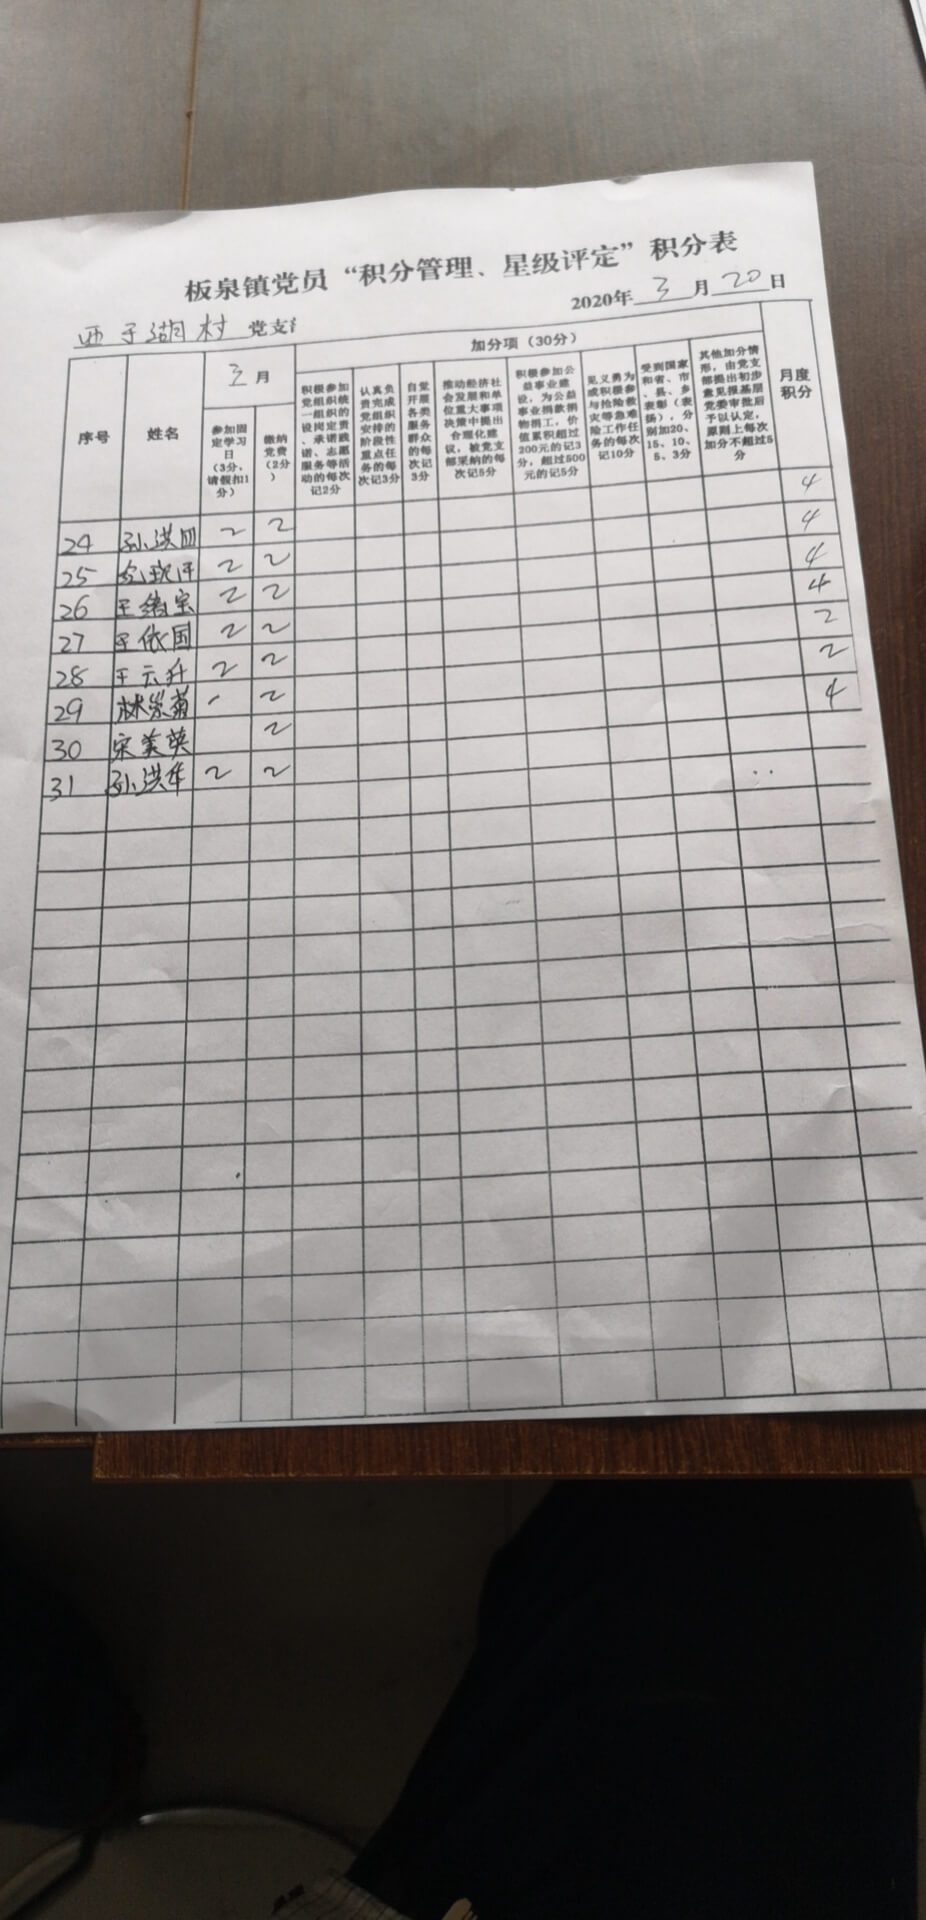 板泉镇党员“积分管理、星级评定”积分表
西于湖村 党支
2020年 3 月 20 日
序号 姓名 3 月 加分项（30分） 月度积分
参加固定学习日（3分，请假扣1分）
缴纳党费（2分）
积极参加党组织统一组织的设岗定责、承诺践诺、志愿服务等活动的每次记2分
认真负责完成党组织安排的阶段性重点任务的每次记3分
自觉开展各类服务群众的每次记3分
推动经济社会发展和单位重大事项决策中提出合理化建议，被党支部采纳的每次记5分
积极参加公益事业建设，为公益事业捐款捐物捐工，价值累积超过200元的记3分，超过500元的记5分
见义勇为或积极参与抢险救灾等急难险工作任务的每次记10分
受到国家和省、市、县、乡表彰（表扬），分别加20、15、10、5、3分
其他加分情形，由党支部提出初步意见报基层党委审批后予以认定，原则上每次加分不超过5分
24 孙洪四 2 2 4
25 2 2 4
26 王绪宝 2 2 4
27 王依国 2 2 4
28 王云升 2 2 2
29 林崇菊 2 2
30 宋美英 2 4
31 孙洪华 2 2